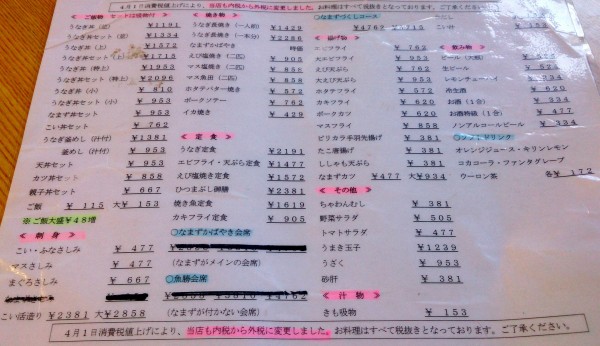 4月1日消費税値上げにより、当店も内税から外税に変更しました。お料理はすべて税抜きとなっております。ご了承ください。
＜ご飯物 セットは吸物付＞
うなぎ丼（並） ¥1191
うなぎ丼セット（並） ¥1334
うなぎ丼（上） ¥1572
うなぎ丼セット（上） ¥1715
うなぎ丼（特上） ¥1953
うなぎ丼セット（特上） ¥2096
うなぎ丼（小） ¥810
うなぎ丼セット（小） ¥953
なまず丼セット ¥953
こい丼セット ¥762
うなぎ釜めし（汁付） ¥1381
釜めし（汁付） ¥953
天丼セット ¥953
カツ丼セット ¥858
親子丼セット ¥667
ご飯 ¥115 大¥153
※ご飯大盛¥48増
＜刺身＞
こい・ふなさしみ ¥477
マスさしみ ¥477
まぐろさしみ ¥667
こい活造り ¥2381 大¥2858
＜焼き物＞
うなぎ長焼き（一人前） ¥1429
うなぎ長焼き（一本分） ¥2286
なまずかばやき 時価
えび塩焼き（二匹） ¥905
マス塩焼き（二匹） ¥858
マス魚田（二匹） ¥858
ホタテバター焼き ¥572
ポークソテー ¥762
イカ焼き ¥429
＜定食＞
うなぎ定食 ¥2191
エビフライ・天ぷら定食 ¥1477
えび塩焼き定食 ¥1572
ひつまぶし御膳 ¥2381
焼き魚定食 ¥1619
カキフライ定食 ¥905
○なまずかばやき会席
（なまずがメインの会席）
○魚勝会席
（なまずが付かない会席）
○なまずづくしコース ¥4762
＜揚げ物＞
エビフライ ¥762
大エビフライ ¥953
えび天ぷら ¥762
大えび天ぷら ¥953
ホタテフライ ¥572
カキフライ ¥762
ポークカツ ¥762
マスフライ ¥858
ピリカラ手羽先揚げ ¥381
たこ唐揚げ ¥381
ししゃも天ぷら ¥381
なまずカツ ¥477 大¥934
＜その他＞
ちゃわんむし ¥381
野菜サラダ ¥505
トマトサラダ ¥477
うまき玉子 ¥1239
うざく ¥953
砂肝 ¥381
＜汁物＞
きも吸物 ¥153
こい汁
＜飲み物＞
ビール（大瓶）
生ビール
レモンチューハイ
冷生酒
お酒（1合） ¥334
お酒特級（1合） ¥477
ノンアルコールビール ¥334
○ソフトドリンク
オレンジジュース・キリンレモン
コカコーラ・ファンタグレープ
ウーロン茶 各¥172
4月1日消費税値上げにより、当店も内税から外税に変更しました。お料理はすべて税抜きとなっております。ご了承ください。